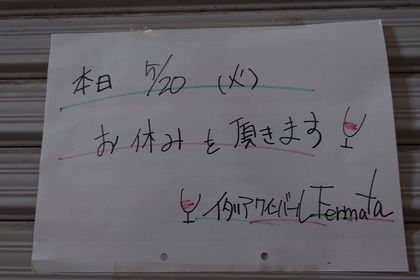 本日 5/20 (火)
お休みを頂きます
イタリアワインバール Fermata